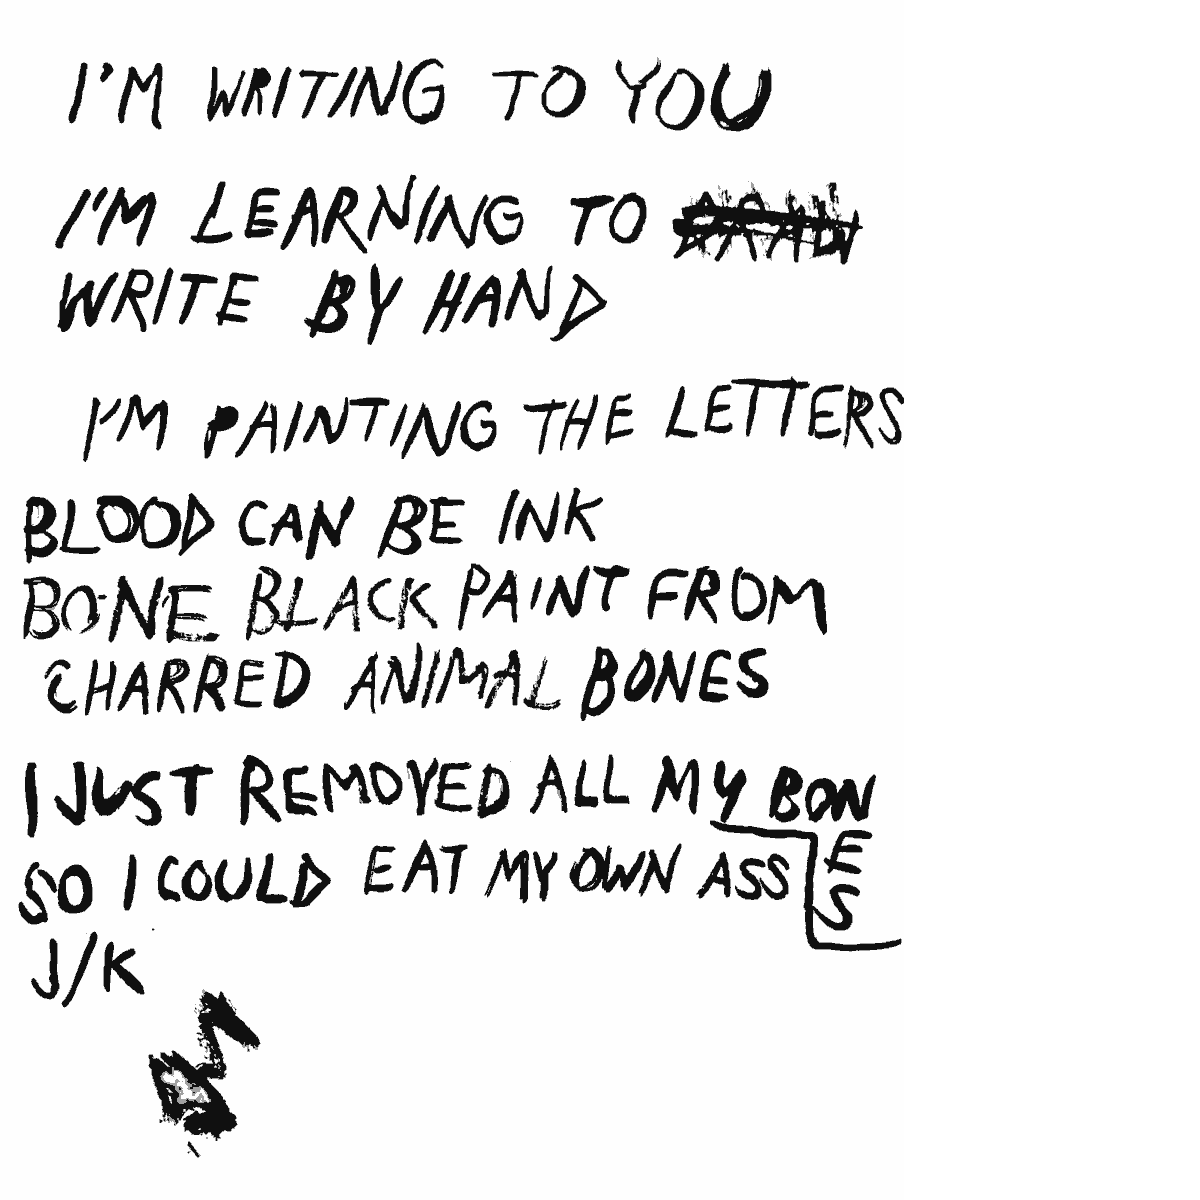 I'M WRITING TO YOU
I'M LEARNING TO
WRITE BY HAND
I'M PAINTING THE LETTERS
BLOOD CAN BE INK
BONE BLACK PAINT FROM
CHARRED ANIMAL BONES
I JUST REMOVED ALL MY BONES
SO I COULD EAT MY OWN ASS
J/K